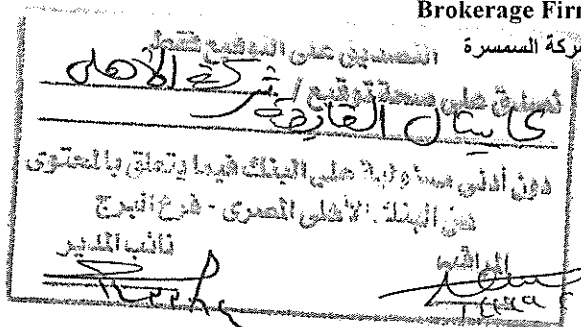 Brokerage Firm
شركة السمسرة
التصديق على التوقيع فقط
نصدق على صحة توقيع / شركة الأهلى
كابيتال القابضة
دون أدنى مسئولية على البنك فيما يتعلق بالمحتوى
عن البنك الأهلى المصرى - فرع البرج
المراقب
نائب المدير